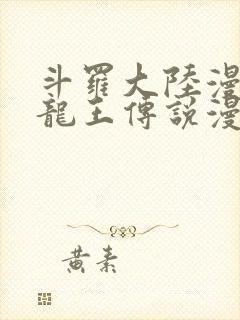 斗羅大陸漫
龍王傳說漫
黃素